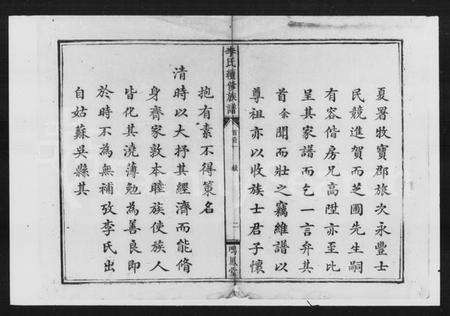 夏署牧寶郡旅次永豐士
民競進賀而芝圃先生嗣
有容偕房兄高陞亦至比
呈其家譜而乞一言弁其
首余閱而壯之竊維譜以
尊祖亦以收族士君子懷
李氏續修族譜
卷首
敘
二
鳴鳳堂
抱有素不得策名
清時以大抒其經濟而能脩
身齊家敦本睦族使族人
皆化其澆薄勉為善良即
於時不為無補攷李氏出
自姑蘇吳縣其